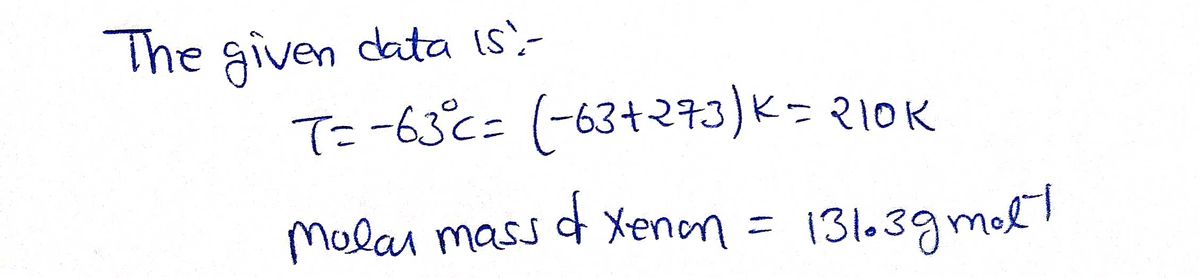 The given data is:-
T= -63°C = (-63+273)K = 210K
Molar mass of Xenon = 131.3g mol⁻¹